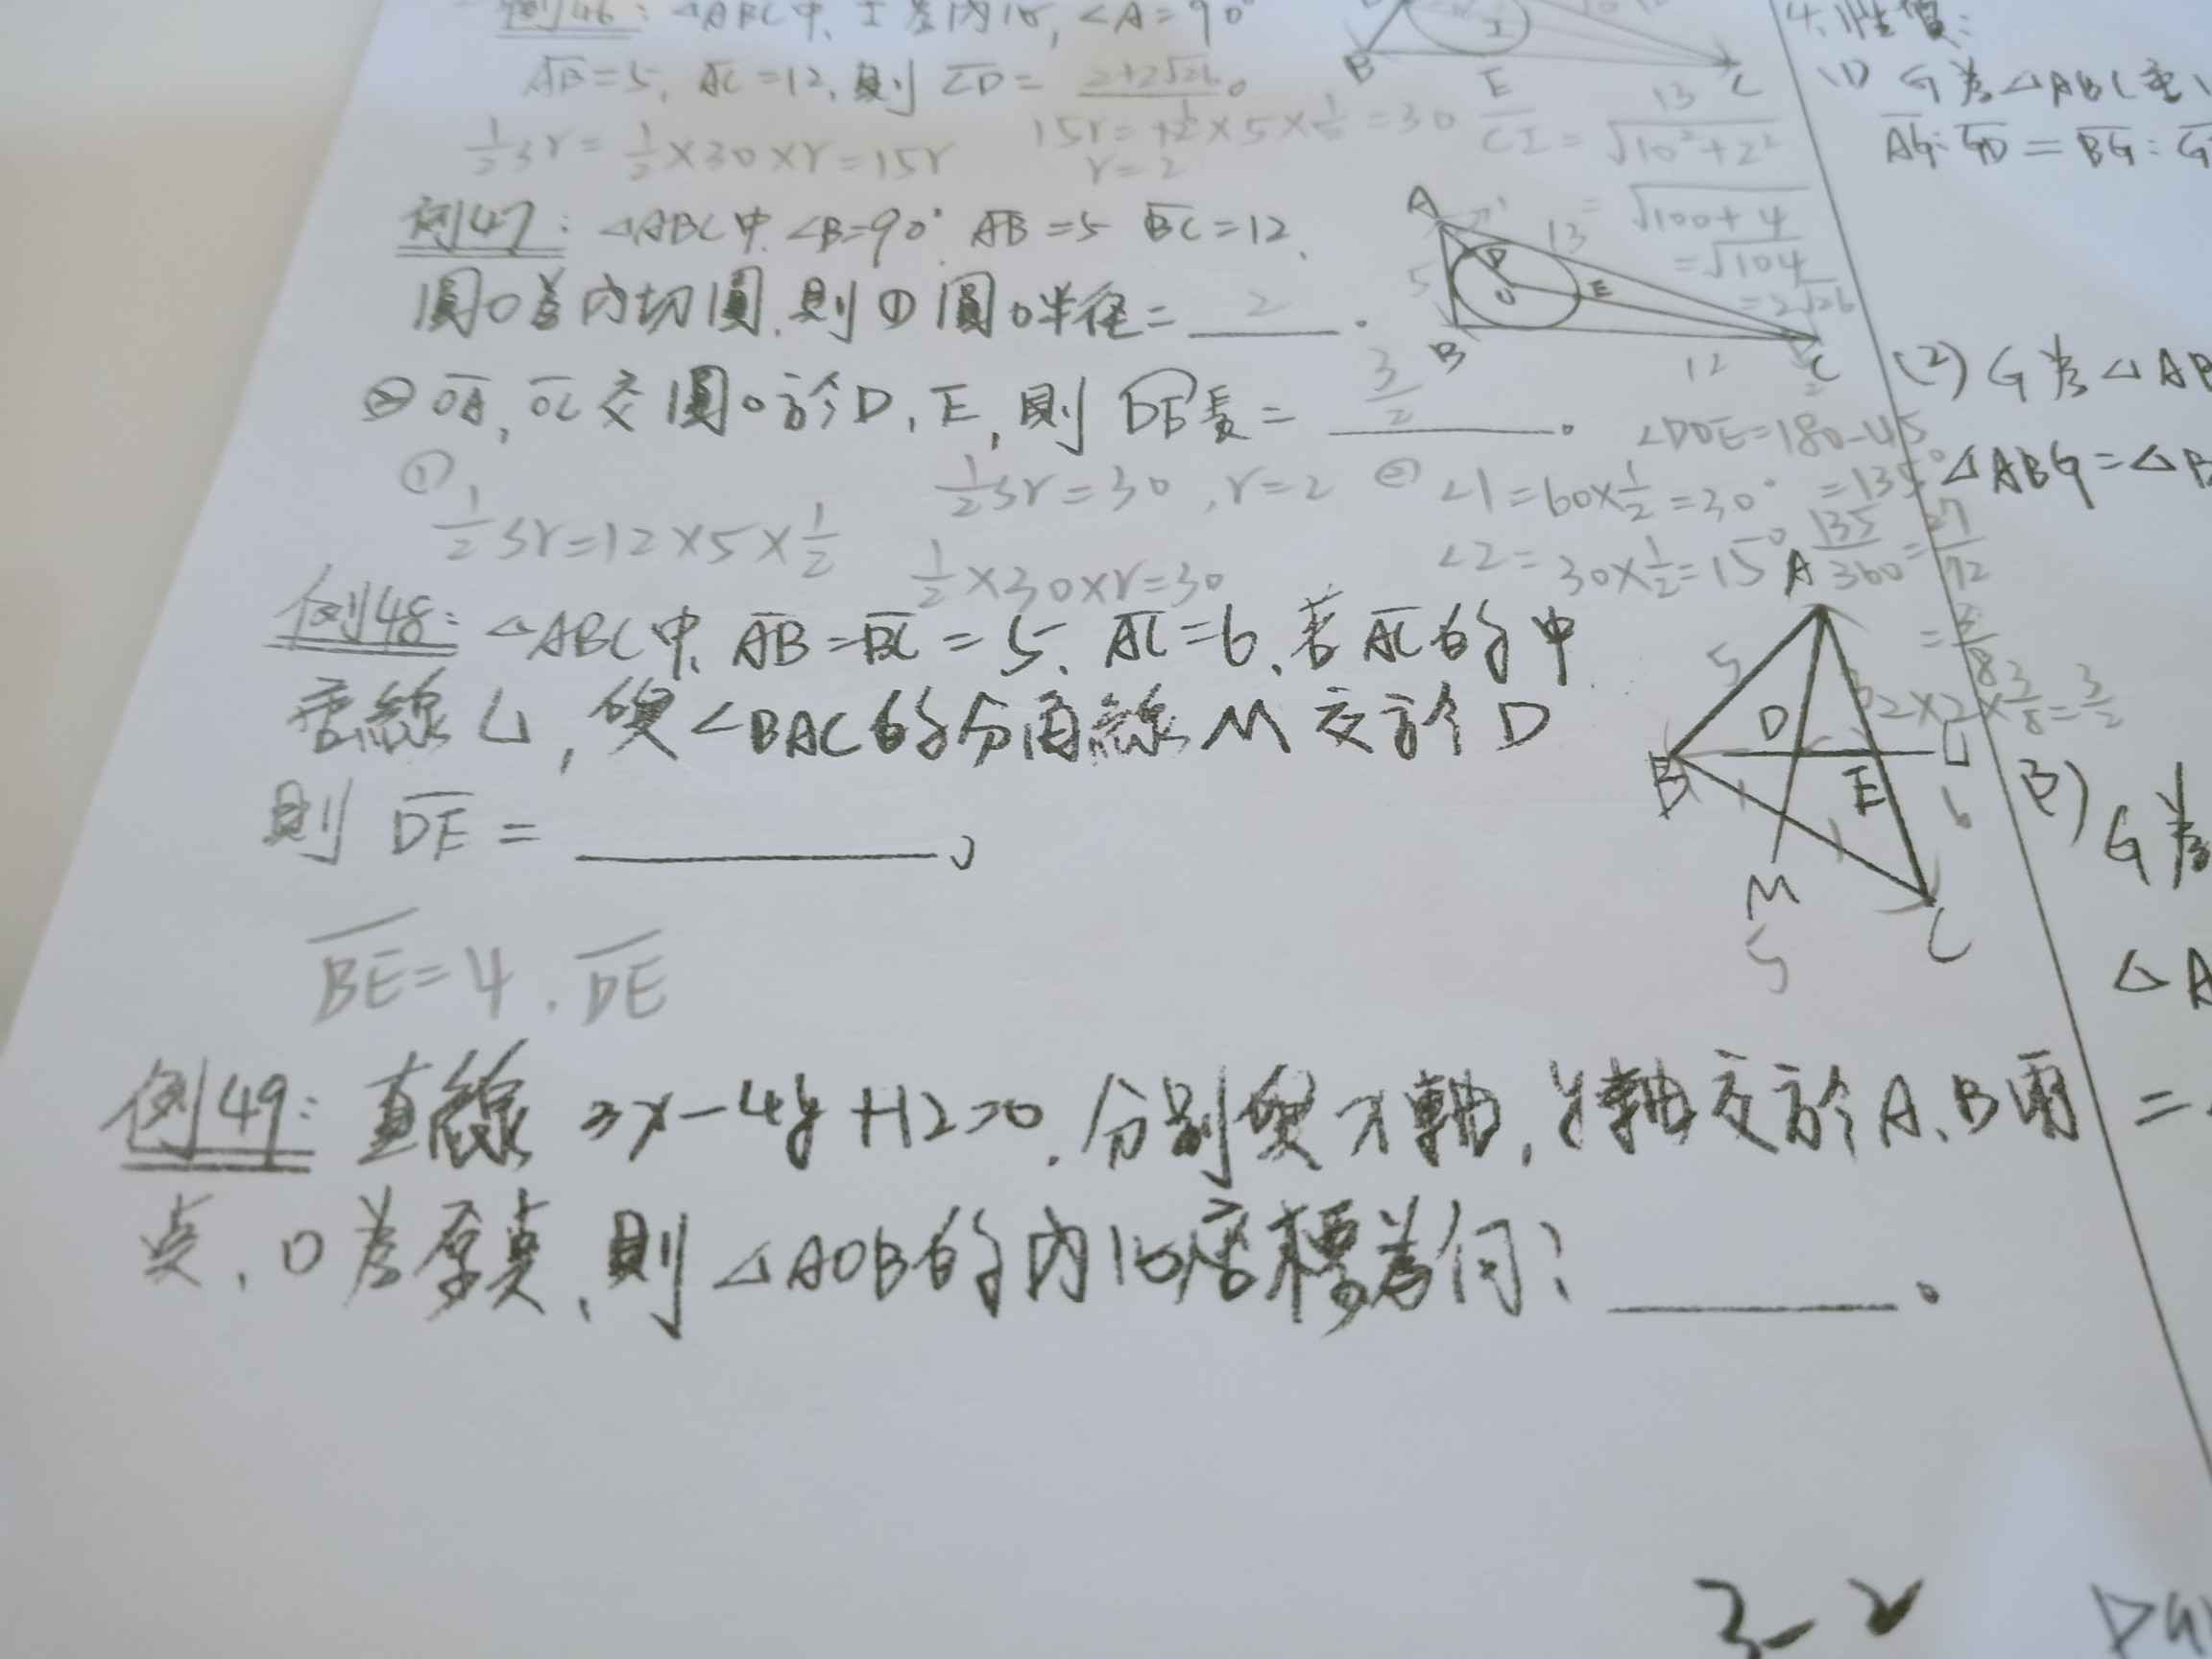 例46：△ABC中，I為內心，∠A=90°
AB=5，AC=12，則 CD= 2+2√26。
½sr=½×30×r=15r
15r=12×5×½=30
r=2
B E C
I
13
CI=√10²+2²
=√100+4
=√104
=2√26
例47：△ABC中，∠B=90° AB=5 BC=12，
圓O為內切圓，則①圓O半徑=2.
②OA，OC交圓O於D，E，則DE長=3/2。
A 13 5 D O E B 12 C
①
½sr=12×5×½
½sr=30，r=2
½×30×r=30
②
∠1=60×½=30°
∠2=30×½=15°
∠DOE=180-45
=135°
135/360=27/72
=3/8
2×2×3/8=3/2
例48：△ABC中，AB=BC=5，AC=6，若AC的中
垂線L，與∠BAC的分角線M交於D
則 DE=
A 5 D L B E 6 M C 5
BE=4，DE
例49：直線 3x-4y+12=0，分別與x軸，y軸交於A、B兩
点，O為原点，則△AOB的內心座標為何？
4.性質：
(1) G為△ABC重
AG：GD=BG：G
(2) G為△AB
△ABG=△B
(3)
G為
△A
=
3-2